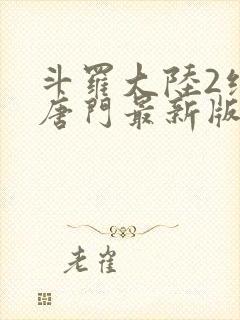 斗羅大陸2
唐門最新版
老雀